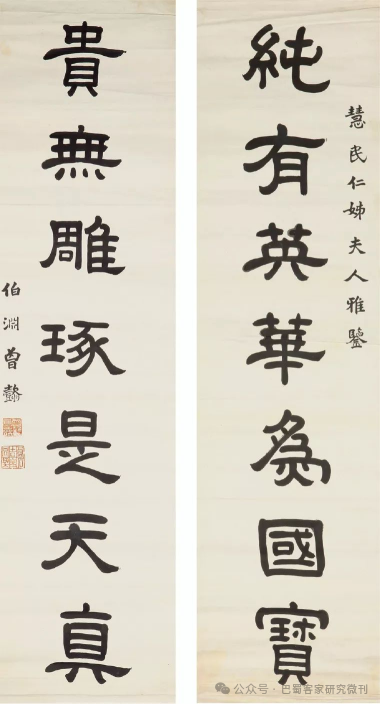 慧民仁姊夫人雅鑒
純有英華為國寶
貴無雕琢是天真
伯淵曾懿
公众号 · 巴蜀客家研究微刊